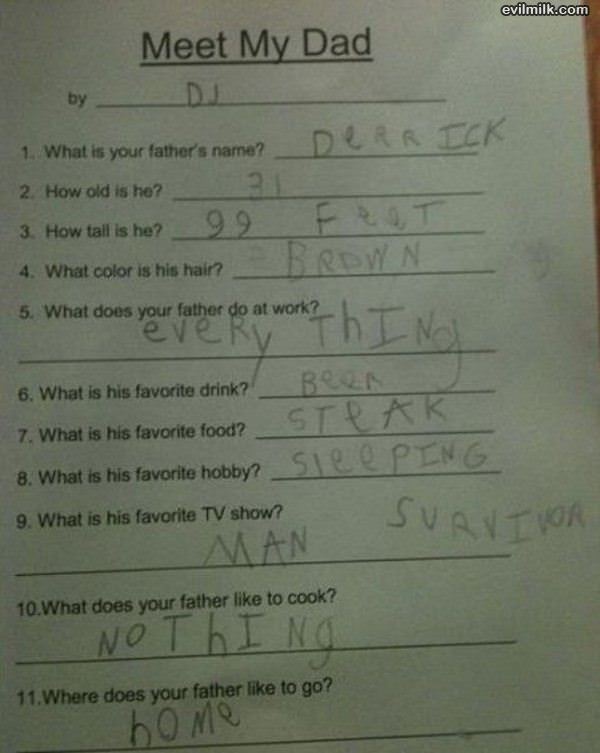 evilmilk.com
Meet My Dad
by DJ
1. What is your father's name? DeRRICK
2. How old is he? 31
3. How tall is he? 99 FeeT
4. What color is his hair? BROWN
5. What does your father do at work?
eveRy ThINg
6. What is his favorite drink? BeeR
7. What is his favorite food? STeAK
8. What is his favorite hobby? SleePING
9. What is his favorite TV show? SURVIVOR
MAN
10.What does your father like to cook?
NOThINg
11.Where does your father like to go?
hOMe